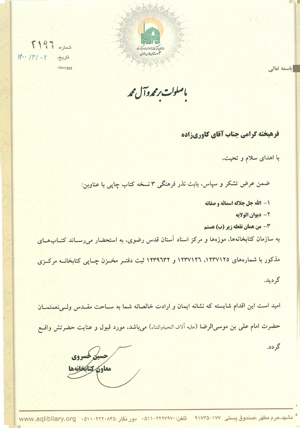 شماره: ۲۱۹۶
تاریخ: ۱۴۰۰/۳/۰۲
پیوست:
باسمه تعالی
با صلوات بر محمد و آل محمد
فرهیخته گرامی جناب آقای کاوری‌زاده
با اهدای سلام و تحیت،
ضمن عرض تشکر و سپاس، بابت نذر فرهنگی ۳ نسخه کتاب چاپی با عناوین:
۱- الله جل جلاله اسمائه و صفاته
۲- دیوان الولایه
۳- من همان نقطه زیر (ب) هستم
به سازمان کتابخانه‌ها، موزه‌ها و مرکز اسناد آستان قدس رضوی، به استحضار می‌رساند کتاب‌های
مذکور با شماره‌های ۱۲۳۷۱۲۵، ۱۲۳۷۱۲۶ و ۱۲۳۹۶۳۲ ثبت دفتر مخزن چاپی کتابخانه مرکزی
گردید.
امید است این اقدام شایسته که نشانه ایمان و ارادت خالصانه شما به ساحت مقدس ولی‌نعمتمان
حضرت امام علی بن موسی‌الرضا (علیه آلاف التحیة والثناء) می‌باشد، مورد قبول و عنایت حضرتش واقع
گردد.
حسین خسروی
معاون کتابخانه‌ها
مشهد، حرم مطهر، صندوق پستی ۱۷۷-۹۱۷۳۵ تلفن: ۲۲۳۷۹۷۰-۰۵۱۱ دورنگار: ۲۲۲۰۸۴۵-۰۵۱۱
www.aqlibilary.org